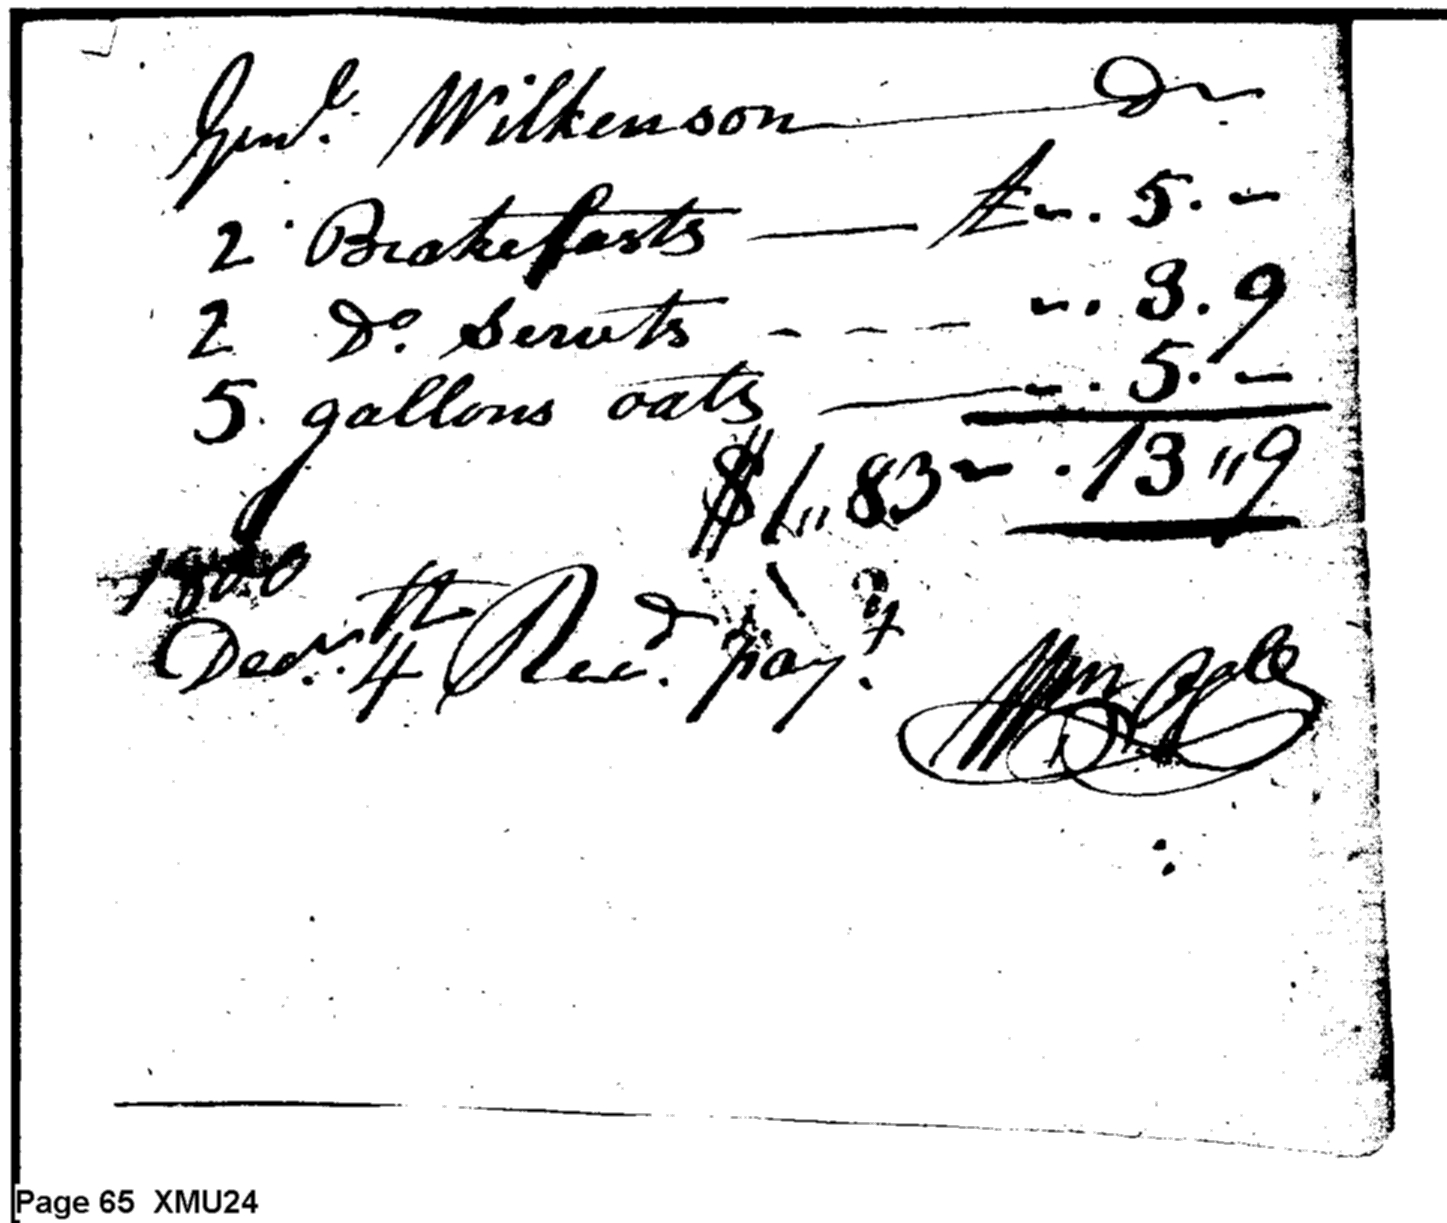 Genl. Wilkenson — Dr
2 Brakefasts — £ ~. 5. –
2 Do. Servts - - - ~. 3. 9
5 gallons oats — ~. 5. –
$1,,83 ~ . 13 ,, 9
1800
Decr. 4th Recd. payt.
Wm Ogle
Page 65 XMU24